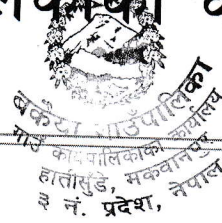 बकैया गाउँपालिका
गाउँ कार्यपालिकाको कार्यालय
हातीसुँडे, मकवानपुर
३ नं. प्रदेश, नेपाल